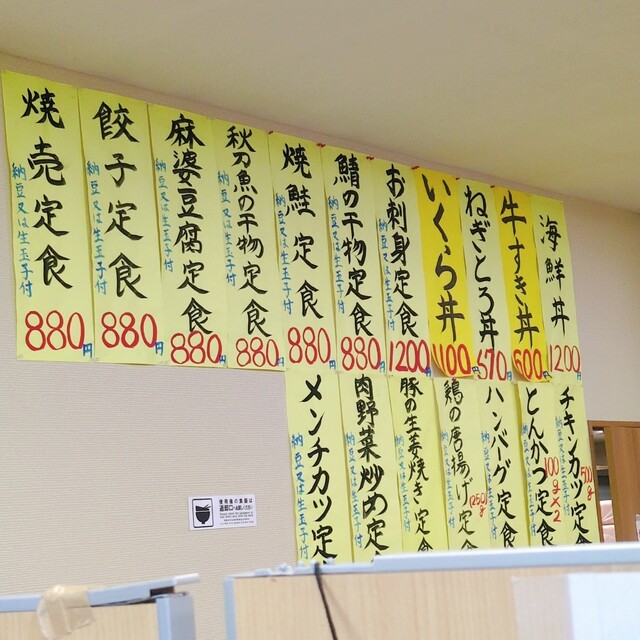 海鮮丼
1200
牛すき丼
600
ねぎとろ丼
670
いくら丼
1100
お刺身定食
納豆又は生玉子付
1200
鯖の干物定食
納豆又は生玉子付
880円
焼鮭定食
納豆又は生玉子付
880円
秋刀魚の干物定食
納豆又は生玉子付
880円
麻婆豆腐定食
納豆又は生玉子付
880円
餃子定食
納豆又は生玉子付
880円
焼売定食
納豆又は生玉子付
880円
チキンカツ定食
500g
とんかつ定食
100g×2
ハンバーグ定食
納豆又は生玉子付
鶏の唐揚げ定食
納豆又は生玉子付
(250g)
豚の生姜焼き定食
納豆又は生玉子付
肉野菜炒め定
納豆又は生玉子付
メンチカツ定
納豆又は生玉子付
使用後の食器は
返却口へお戻しください